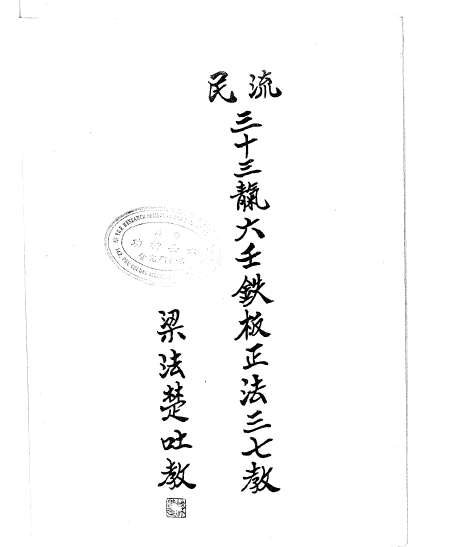 流民
三十三靝六壬鉄板正法三七教
梁法楚吐教